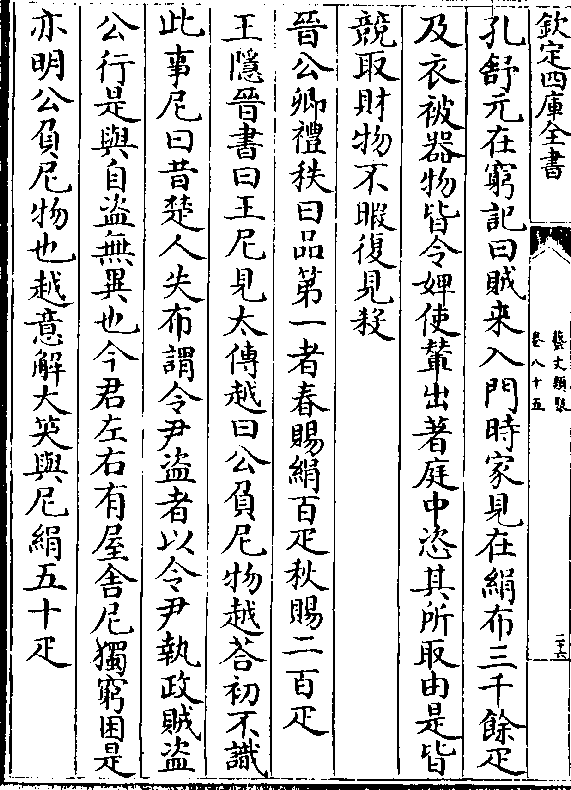 欽定四庫全書
藝文類聚
卷八十五
二十六
孔舒元在窮記曰賊来入門時家見在絹布三千餘疋
及衣被器物皆令婢使輦出著庭中恣其所取由是皆
競取財物不暇復見殺
晉公卿禮秩曰品第一者春賜絹百疋秋賜二百疋
王隱晉書曰王尼見太傅越曰公負尼物越荅初不識
此事尼曰昔楚人失布謂令尹盗者以令尹執政賊盗
公行是與自盗無異也今君左右有屋舍尼獨窮困是
亦明公負尼物也越意解大笑與尼絹五十疋